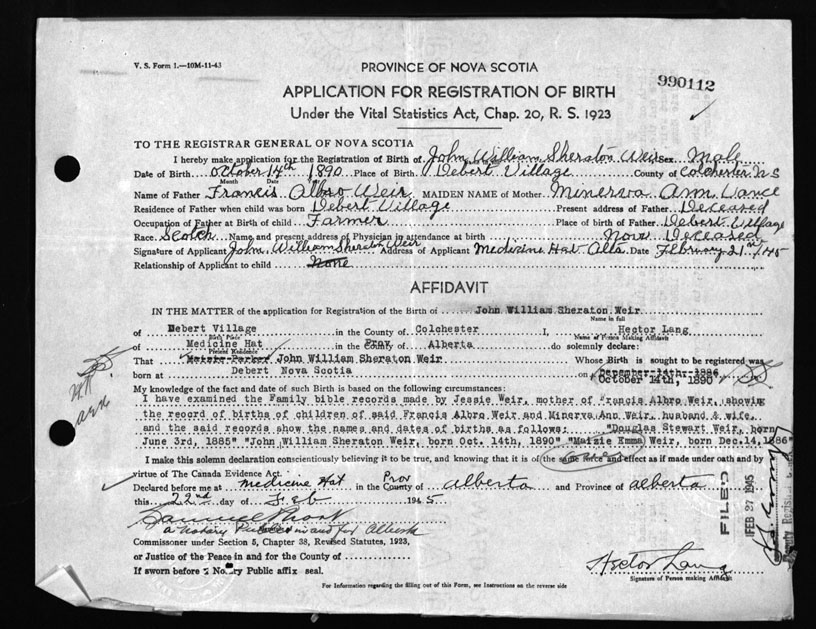 V. S. Form 1.—10M-11-43
PROVINCE OF NOVA SCOTIA
990112
APPLICATION FOR REGISTRATION OF BIRTH
Under the Vital Statistics Act, Chap. 20, R. S. 1923
TO THE REGISTRAR GENERAL OF NOVA SCOTIA
I hereby make application for the Registration of Birth of John William Sheraton Weir Sex Male
Date of Birth October 14th 1890 Place of Birth Debert Village County of Colchester N S
Month Date Year
Name of Father Francis Albro Weir MAIDEN NAME of Mother Minerva Ann Vance
Residence of Father when child was born Debert Village Present address of Father Deceased
Occupation of Father at Birth of child Farmer Place of birth of Father Debert Village
Race Scotch Name and present address of Physician in attendance at birth Now Deceased
Signature of Applicant John William Sheraton Weir Address of Applicant Medicine Hat Alta. Date February 21st/45
Relationship of Applicant to child None
AFFIDAVIT
IN THE MATTER of the application for Registration of the Birth of John William Sheraton Weir
Name in full
of Debert Village in the County of Colchester I, Hector Lang
Birth Place Name of Person Making Affidavit
of Medicine Hat in the Prov of Alberta do solemnly declare:
Present Residence
That Maizie Parker John William Sheraton Weir Whose Birth is sought to be registered was
born at Debert Nova Scotia on December 14th, 1886
October 14th, 1890
My knowledge of the fact and date of such Birth is based on the following circumstances:
I have examined the Family bible records made by Jessie Weir, mother of Francis Albro Weir, showing
the record of births of children of said Francis Albro Weir and Minerva Ann Weir, husband & wife,
and the said records show the names and dates of births as follows: "Douglas Stewart Weir, born
June 3rd, 1885" "John William Sheraton Weir, born Oct. 14th, 1890" "Maizie Emma Weir, born Dec.14,1886"
I make this solemn declaration conscientiously believing it to be true, and knowing that it is of the same force and effect as if made under oath and by
virtue of The Canada Evidence Act.
Declared before me at Medicine Hat in the Prov County of Alberta and Province of Alberta
this 22nd day of Feb 1945
a Notary Public in and for Alberta
Commissioner under Section 5, Chapter 38, Revised Statutes, 1923,
or Justice of the Peace in and for the County of
If sworn before a Notary Public affix seal.
Hector Lang
Signature of Person making Affidavit
For Information regarding the filling out of this Form, see Instructions on the reverse side
FILED
FEB 27 1945